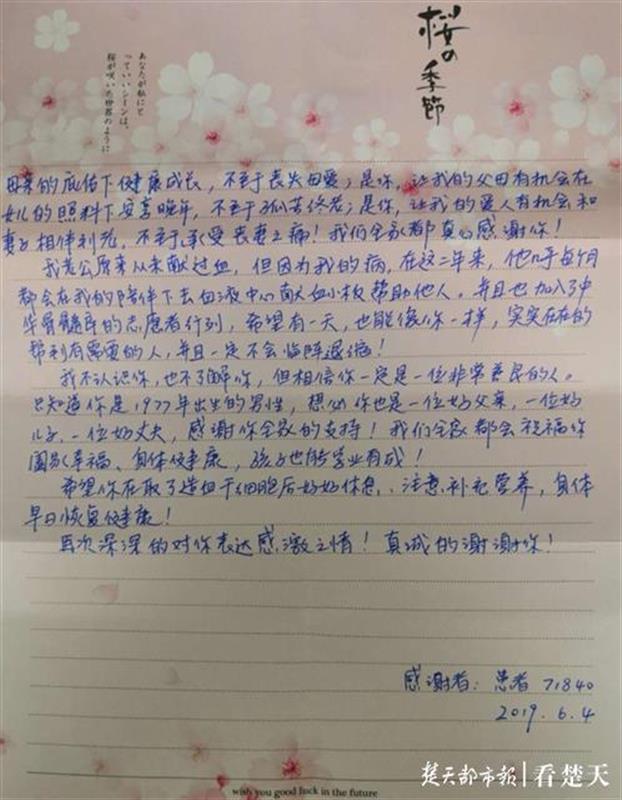 桜の季節
あなたが私にと
っていいシーンは、
桜が咲いた世界のように
母亲的庇佑下健康成长，不至于丧失母爱；是你，让我的父母有机会在
女儿的照料下安享晚年，不至于孤苦终老；是你，让我的爱人有机会和
妻子相伴到老，不至于承受丧妻之痛！我们全家都真心感谢你！
我老公原来从未献过血，但因为我的病，在这二年来，他几乎每个月
都会在我的陪伴下去血液中心献血小板帮助他人。并且也加入了中
华骨髓库的志愿者行列，希望有一天，也能像你一样，实实在在的
帮到有需要的人，并且一定不会临阵退缩！
我不认识你，也不了解你，但相信你一定是一位非常善良的人。
只知道你是1977年出生的男性，想必你也是一位好父亲，一位好
儿子，一位好丈夫，感谢你全家的支持！我们全家都会祝福你
阖家幸福、身体健康，孩子也能学业有成！
希望你在取了造血干细胞后好好休息、注意补充营养，身体
早日恢复健康！
再次深深的对你表达感激之情！真诚的谢谢你！
感谢者：患者 71840
2019.6.4
wish you good luck in the future
楚天都市報|看楚天